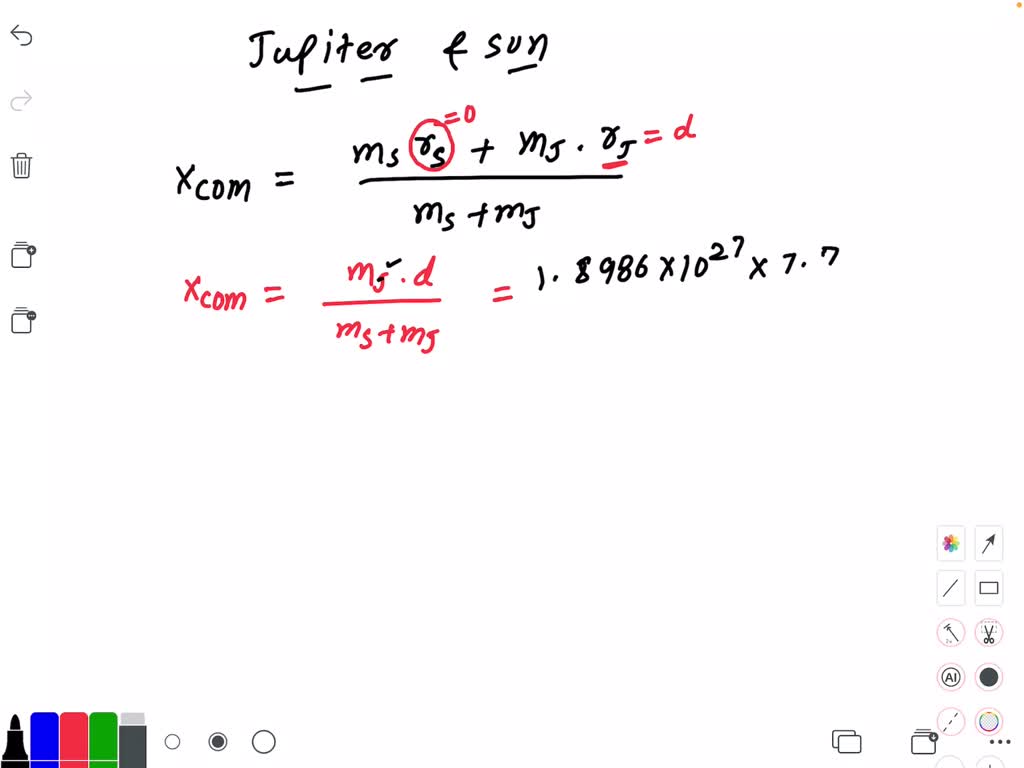 Jupiter & sun
=0
x_com = (m_s r_s + m_J · r_J) / (m_s + m_J) = d
x_com = (m_J · d) / (m_s + m_J) = 1.8986 × 10^27 × 7.7
AI
2x